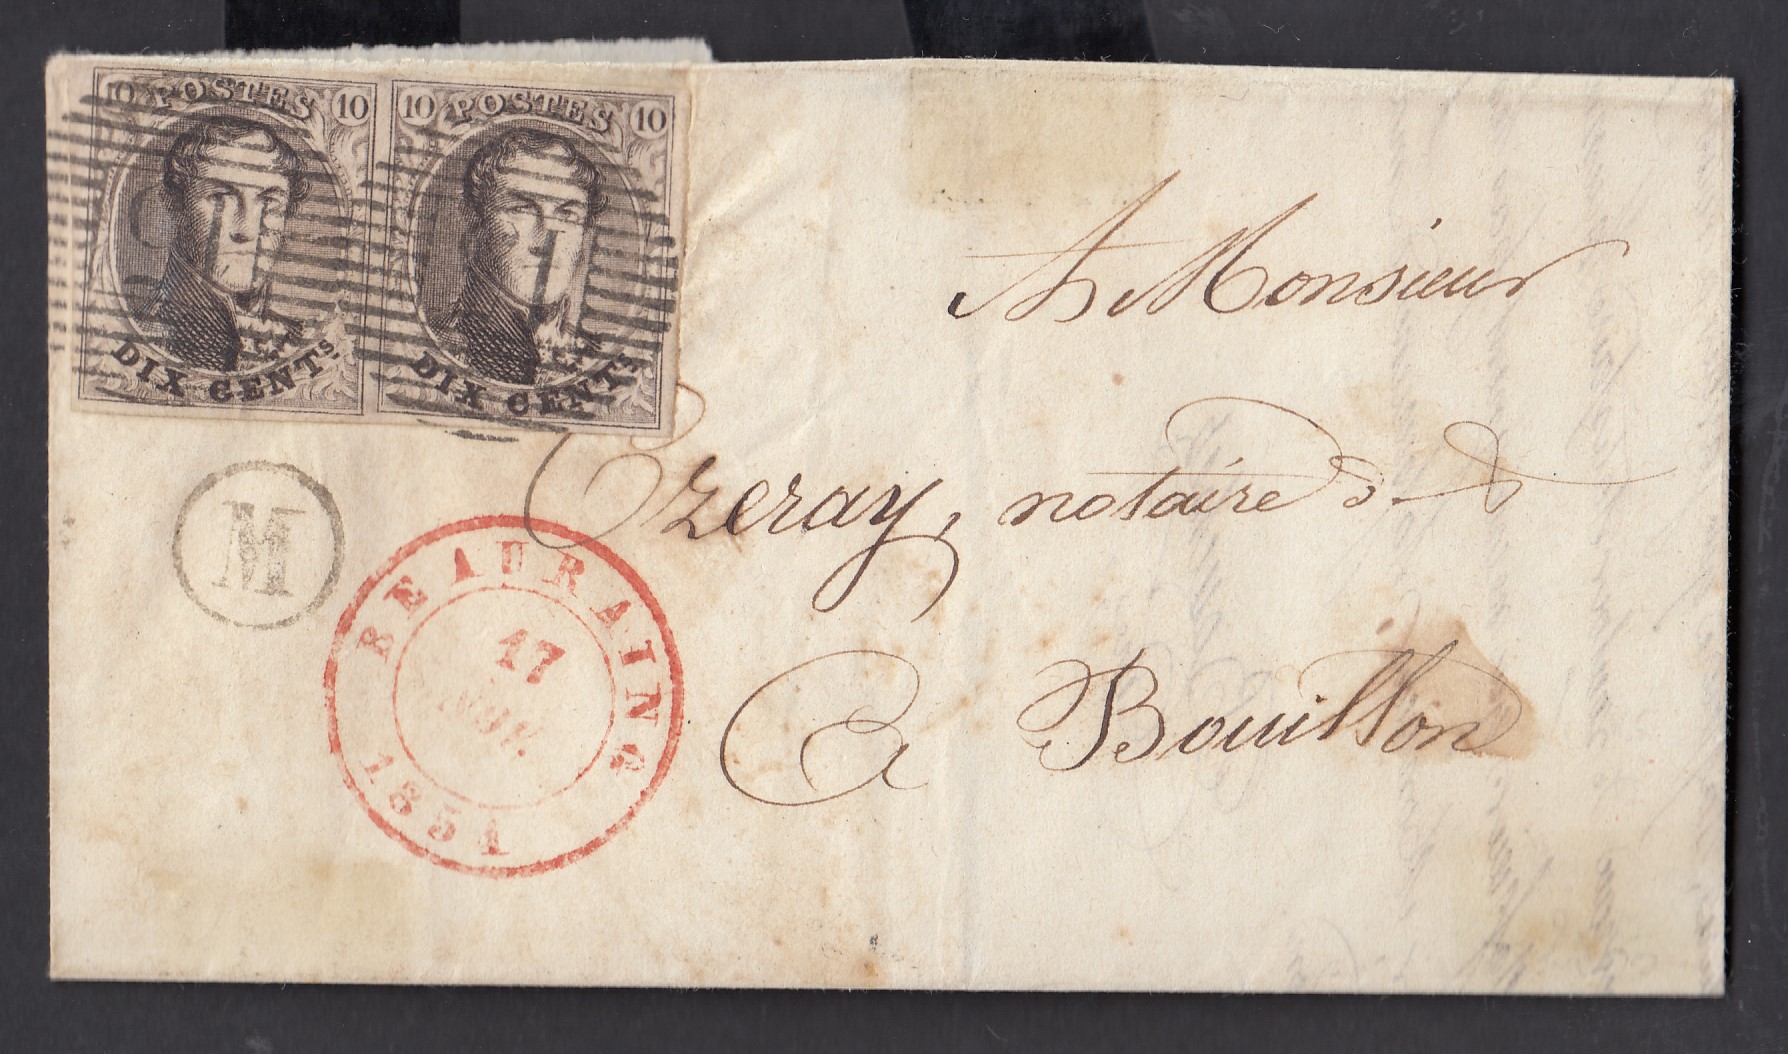 10 POSTES 10
DIX CENTS
10 POSTES 10
DIX CENTS
A Monsieur
Ozeray, notaire &
M
BEAURAING
17
NOV.
1854
A Bouillon